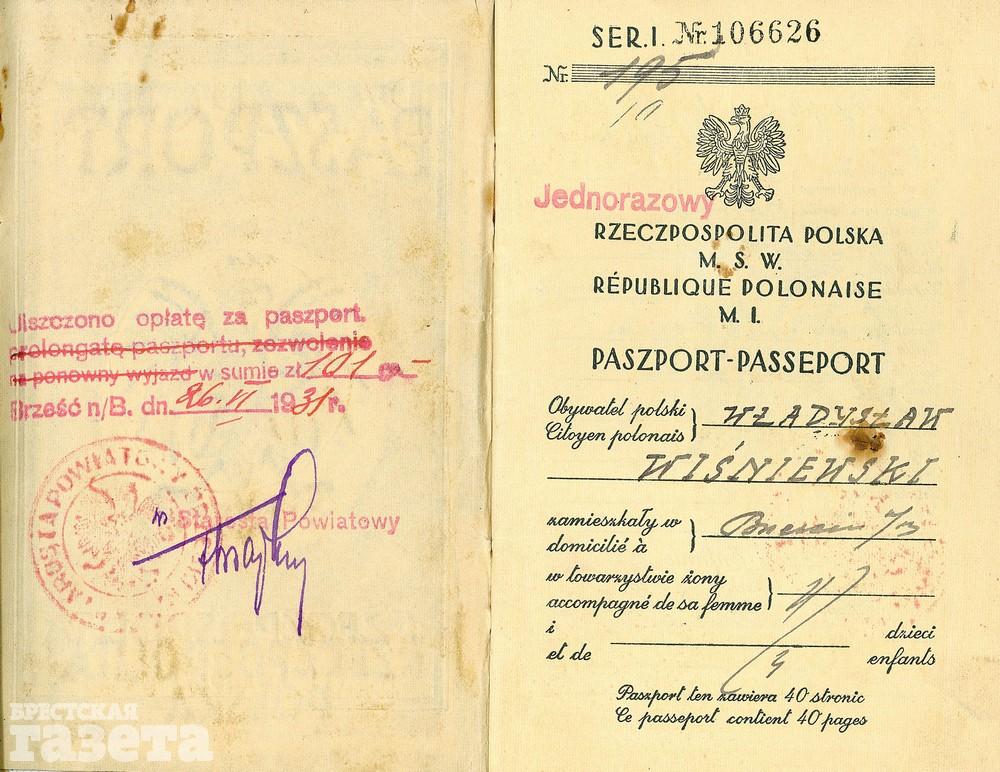 Uiszczono opłatę za paszport.
prolongatę paszportu, zezwolenie
na ponowny wyjazd w sumie zł. 101
Brześć n/B. dn. 26.VI 1931 r.
Starosta Powiatowy
БРЕСТСКАЯ
газета
SER.I. Nr. 106626
Nr. 195
10
Jednorazowy
RZECZPOSPOLITA POLSKA
M. S. W.
RÉPUBLIQUE POLONAISE
M. I.
PASZPORT-PASSEPORT
Obywatel polski
Citoyen polonais } WŁADYSŁAW
WIŚNIEWSKI
zamieszkały w
domicilié à }
w towarzystwie żony
accompagné de sa femme }
i dzieci
et de enfants
Paszport ten zawiera 40 stronic
Ce passeport contient 40 pages